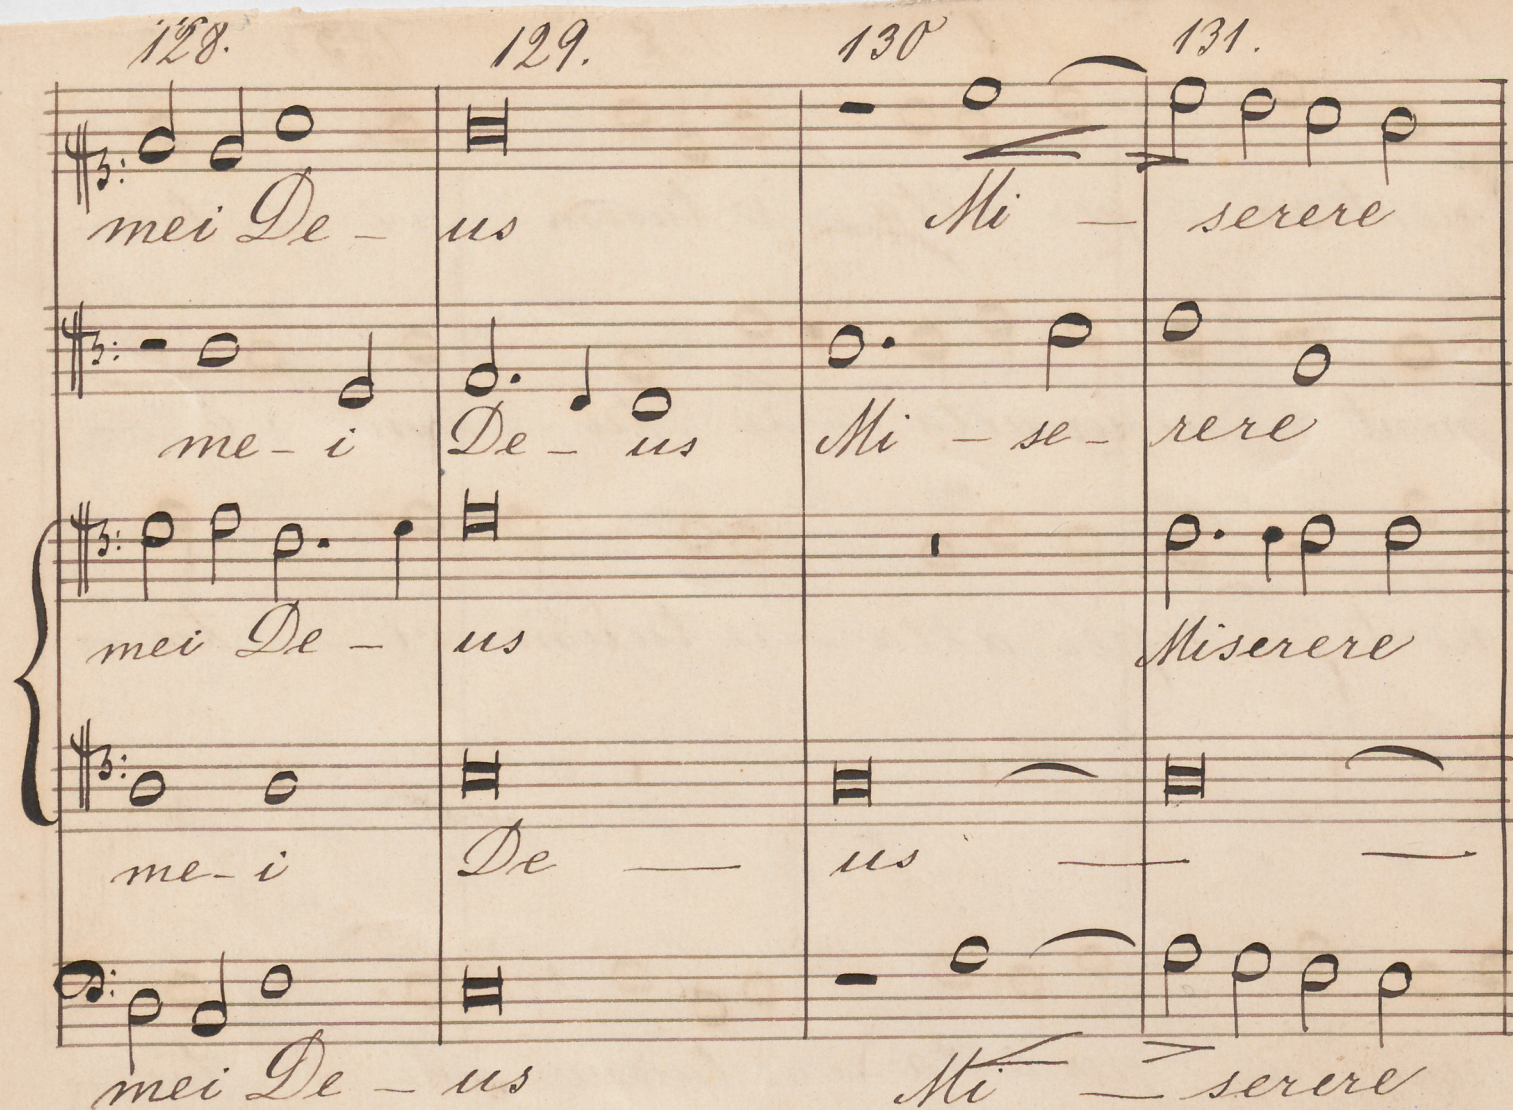 128. 129. 130 131.
mei De - us Mi — serere
me - i De - us Mi - se - rere
mei De - us Miserere
me - i De — us — —
mei De - us Mi — serere